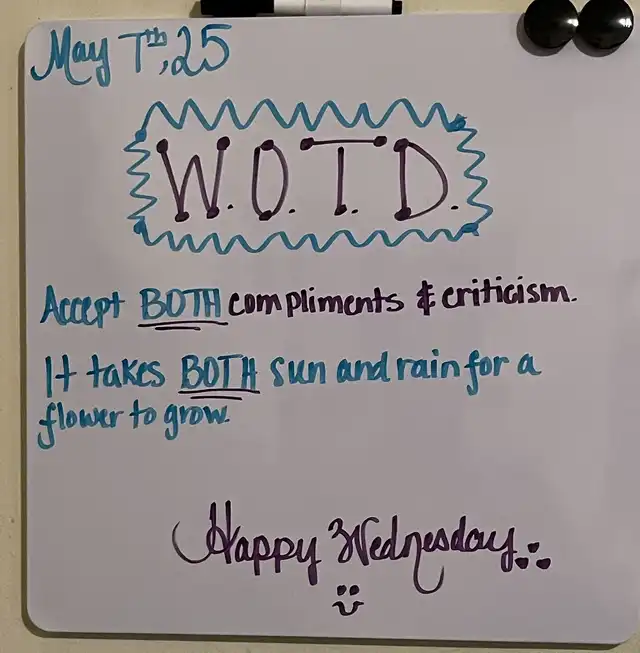 May 7th, 25
W.O.T.D.
Accept BOTH compliments & criticism.
It takes BOTH sun and rain for a
flower to grow.
Happy Wednesday